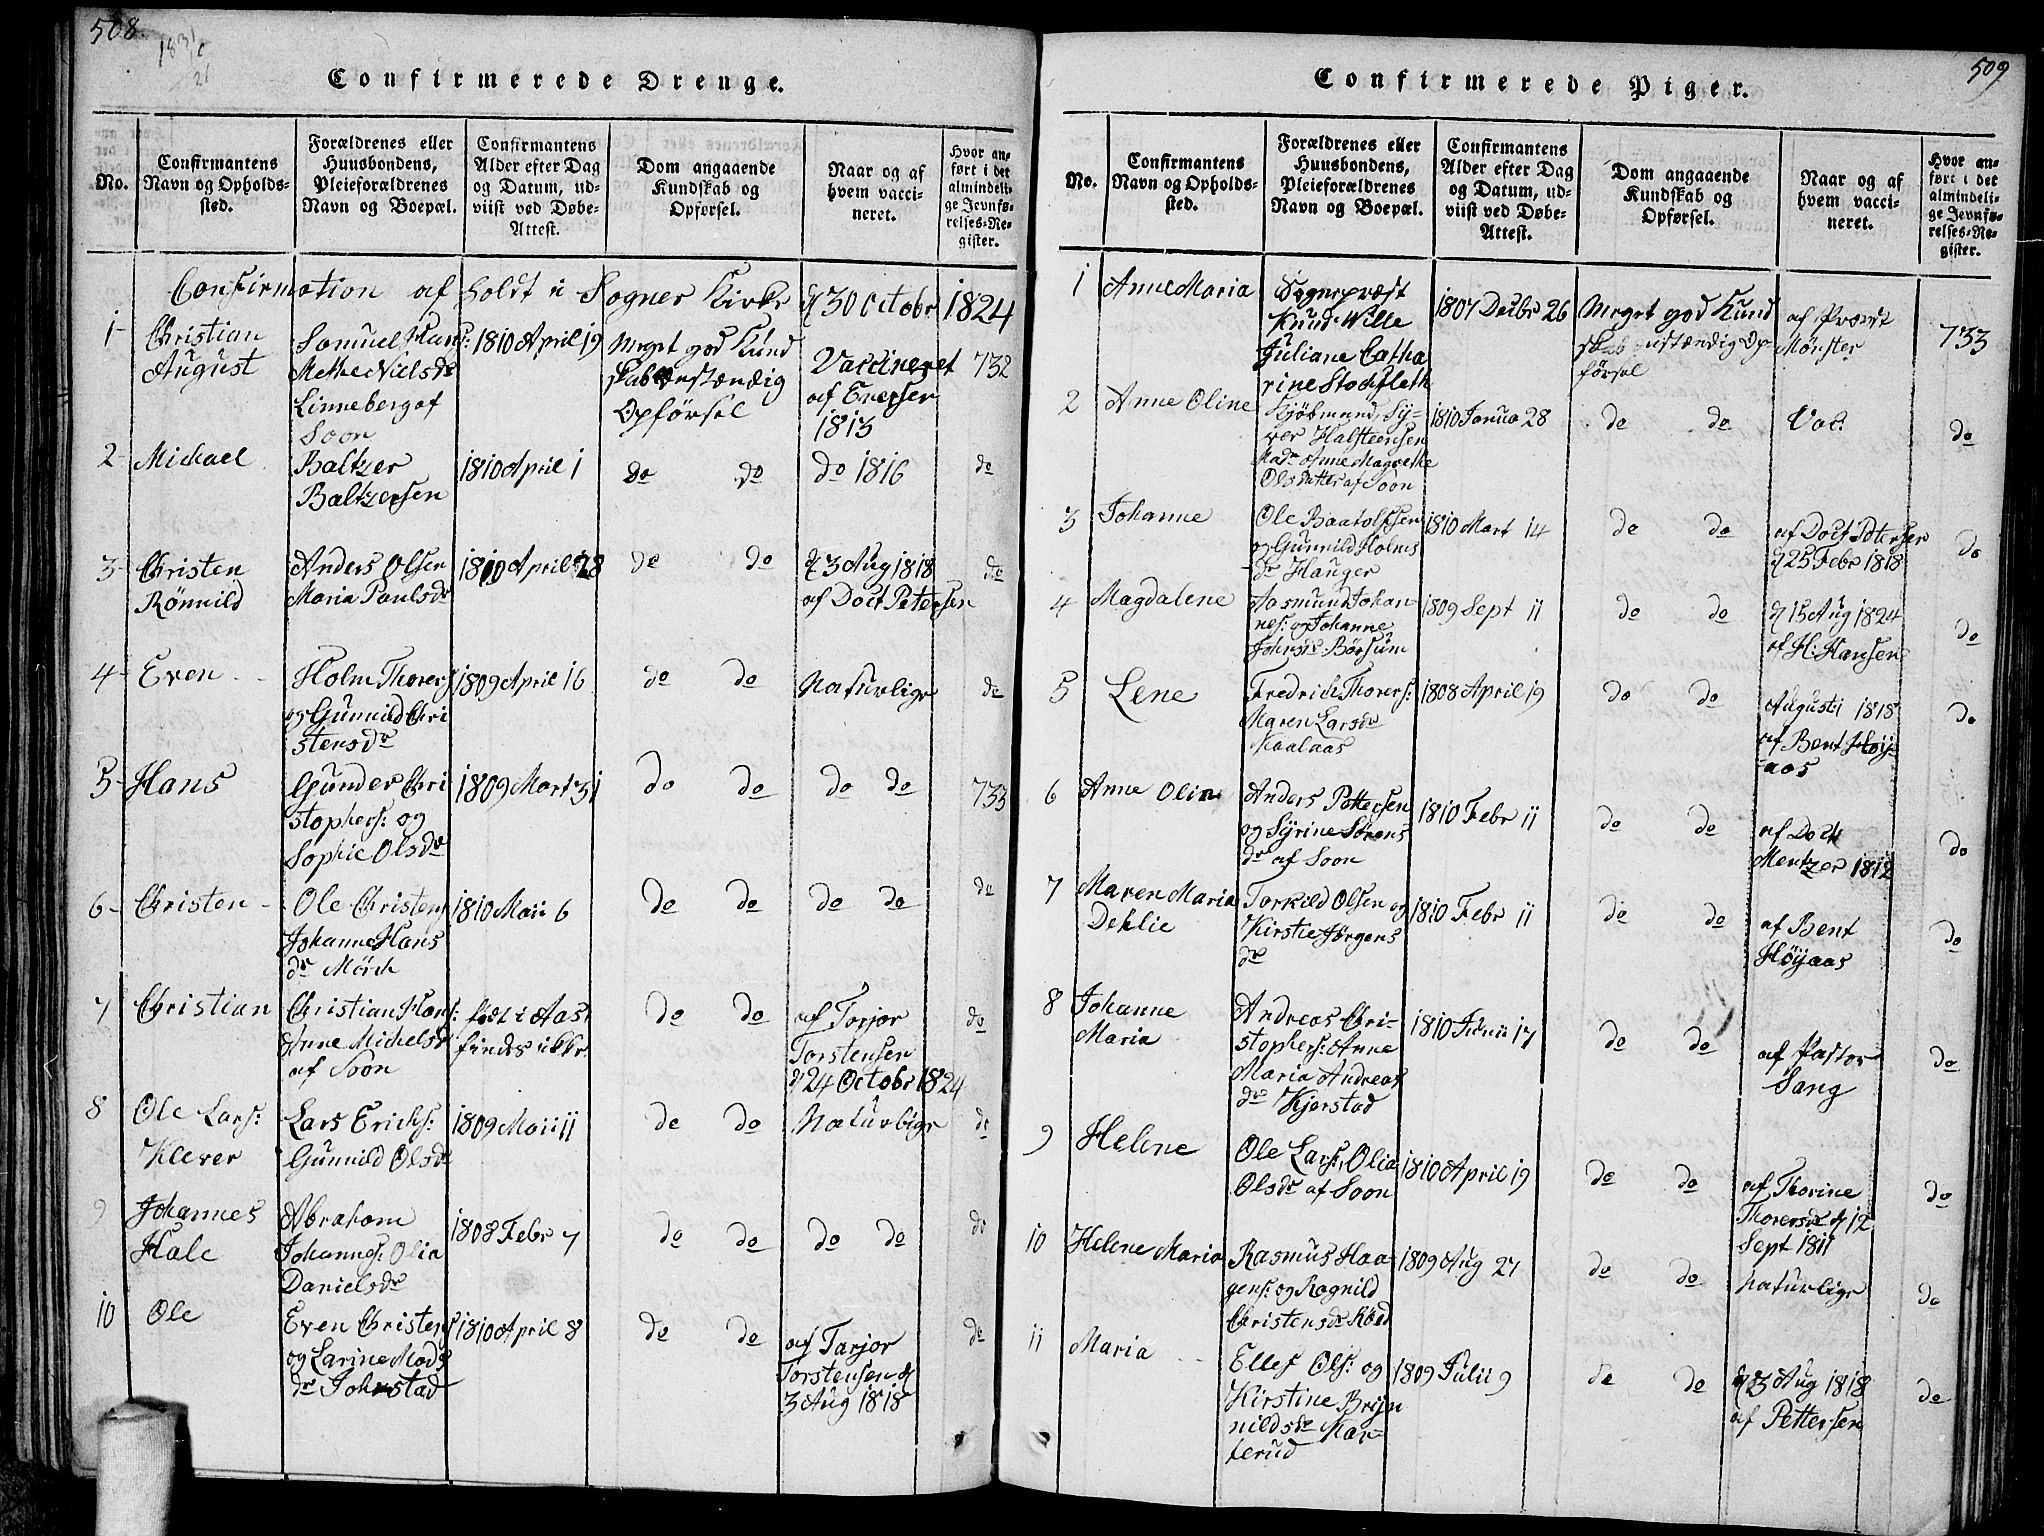 508.
1831
Confirmerede Drenge.
No.
Confirmantens
Navn og Opholds-
sted.
Forældrenes eller
Huusbondens,
Pleieforældrenes
Navn og Boepæl.
Confirmantens
Alder efter Dag
og Datum, ud-
viist ved Døbe-
Attest.
Dom angaaende
Kundskab og
Opførsel.
Naar og af
hvem vacci-
neret.
Hvor an-
ført i det
almindeli-
ge Jevnfø-
relses-Re-
gister.
Confirmation af holdt i Sogner Kirke d 30 Octobr 1824
1 Christian
August
Samuel Hans:
Methe Nielsdr
Linneberg af
Soon
1810 April 19
Meget god Kund
skab anstændig
Opførsel
Vaccineret
af Enersen
1813
732
2 Michael
Baltzer
Baltzersen
1810 April 1
do do
do 1816
do
3 Christen
Rönnild
Anders Olsen
Maria Paulsdr
1810 April 28
do do
d 3 Aug 1818
af Doct Petersen
do
4 Even
Holm Thorers
og Gunnild Chri
stensdr
1809 April 16
do do
Naturlige
do
5 Hans
Gunder Chri
stophers: og
Sophie Olsdr
1809 Mart 31
do do
do do
733
6 Christen
Ole Christens
Johanne Hans
dr Mörch
1810 Maii 6
do do
do do
do
7 Christian
Christian Hans:
Anne Michelsdr
af Soon
födt i Aas
findes ikke
do do
af Torjor
Torstensen
d 24 Octobr 1824
do
8 Ole Lars:
Klever
Lars Ericks:
Gunnild Olsdr
1809 Maii 11
do do
Naturlige
do
9 Johannes
Hale
Abraham
Johannes: Olia
Danielsdr
1808 Febr 7
do do
do do
do
10 Ole
Even Christens
og Larine Mads
dr Johnstad
1810 April 8
do do
af Tarjor
Torstensen d
3 Aug 1818
do
509
Confirmerede Piger.
No.
Confirmantens
Navn og Opholds-
sted.
Forældrenes eller
Huusbondens,
Pleieforældrenes
Navn og Boepæl.
Confirmantens
Alder efter Dag
og Datum, ud-
viist ved Døbe-
Attest.
Dom angaaende
Kundskab og
Opførsel.
Naar og af
hvem vacci-
neret.
Hvor an-
ført i det
almindeli-
ge Jevnfø-
relses-Re-
gister.
1 Anne Maria
Sognepræst
Knud Wille
Juliane Catha
rine Stockfleth
1807 Decbr 26
Meget god Kund
skab anstændig Op
försel
af Provst
Mönster
733
2 Anne Oline
Kjöbmand Sy-
ver Halsteensen
Madr Anne Magrethe
Olsdatter af Soon
1810 Janua 28
do do
Vac:
do
3 Johanne
Ole Baatolfsen
og Gunnild Holms
dr Hauger
1810 Mart 14
do do
af Doct Petersen
d 25 Febr 1818
do
4 Magdalene
Aasmund Johan
nes: og Johanne
Johnsdr Börsum
1809 Sept 11
do do
d 15 Aug 1824
af H: Hansen
do
5 Lene
Fredrich Thorers:
Maren Larsdr
Kaalaas
1808 April 19
do do
Augusti 1818
af Bent Höij-
aas
do
6 Anne Olin
Anders Pettersen
og Syrine Sörens
dr af Soon
1810 Febr 11
do do
af Doct
Mentzer 1812
do
7 Maren Maria
Dehlie
Torkild Olsen og
Kirstie Jörgens
dr
1810 Febr 11
do do
af Bent
Höijaas
do
8 Johanne
Maria
Andreas Chri-
stophers: Anne
Maria Andreas
dr Kjerstad
1810 Junii 17
do do
af Pastor
Sang
do
9 Helene
Ole Lars, Olia
Olsdr af Soon
1810 April 19
do do
af Thorine
Thorersdr d 12
Sept 1811
do
10 Helene Maria
Rasmus Haa-
gens: og Ragnild
Christensdr Röed
1809 Aug 27
do do
Naturlige
do
11 Maria
Ellef Ols: og
Kirstine Bryn
nildsdr Kar-
terud
1809 Julii 9
do do
d 3 Aug 1818
af Pettersen
do